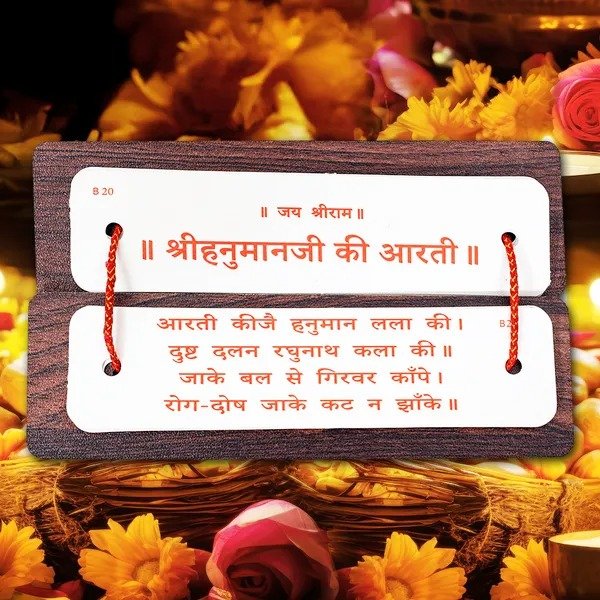 B 20
॥ जय श्रीराम॥
॥ श्रीहनुमानजी की आरती॥
आरती कीजै हनुमान लला की।
दुष्ट दलन रघुनाथ कला की॥
जाके बल से गिरवर काँपे।
रोग-दोष जाके कट न झाँके॥